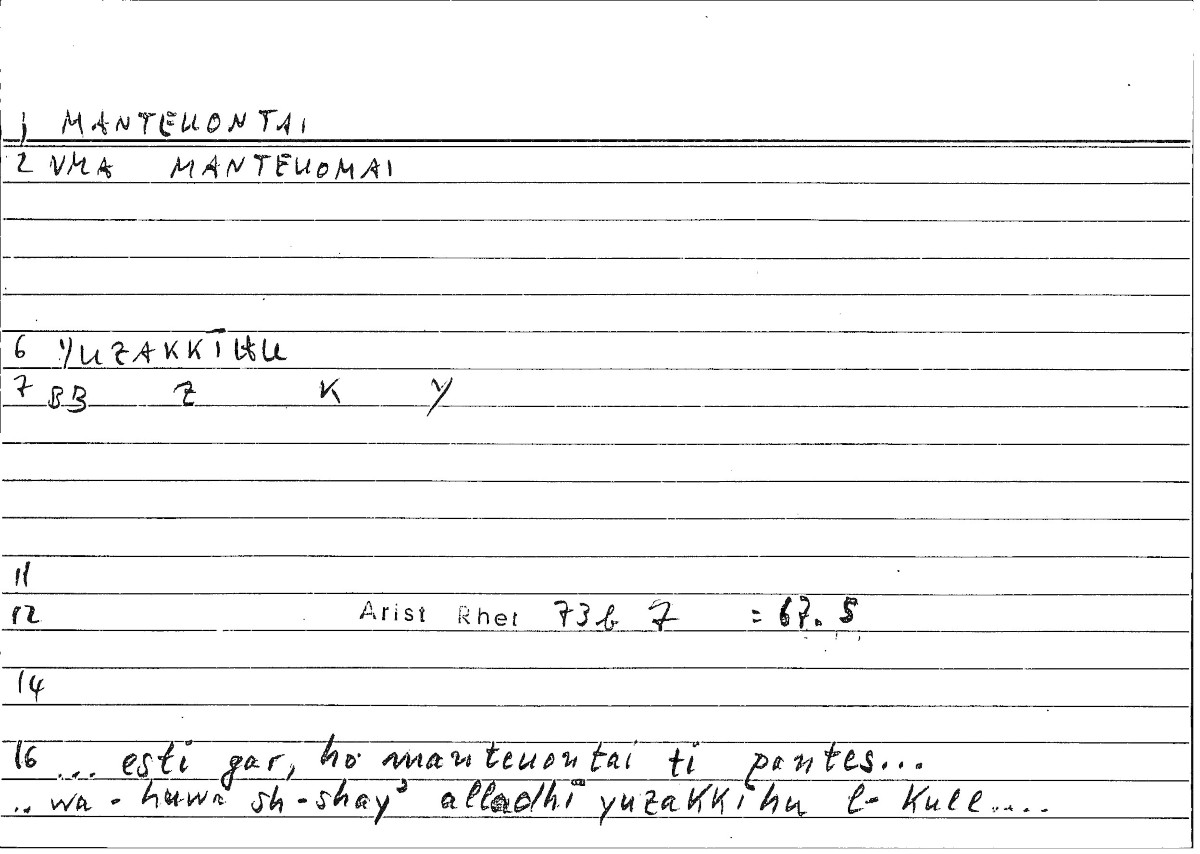 1 MANTEUONTAI
2 VMA MANTEUOMAI
6 YUZAKKĪHU
7 BB Z K Y
11
12 Arist Rhet 73b 7 = 67.5
14
16 ... esti gar, ho manteuontai ti pantes...
.. wa-huwa sh-shayʾ alladhī yuzakkīhu l-kull....